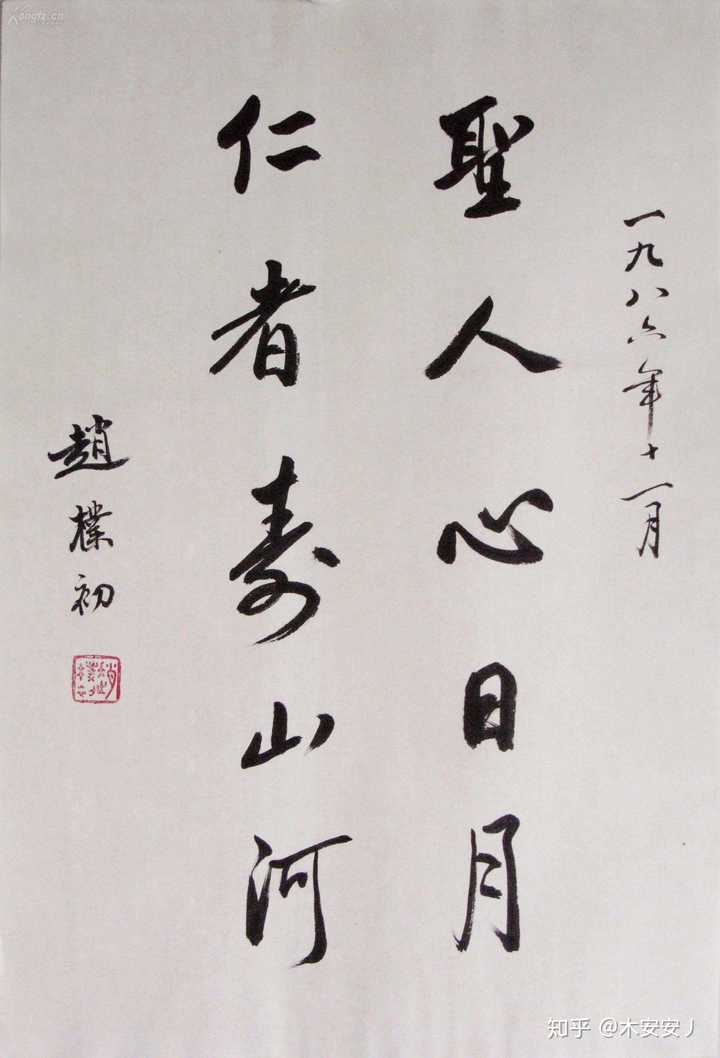 一九八六年十一月
聖人心日月
仁者寿山河
趙樸初
知乎 @木安安丿